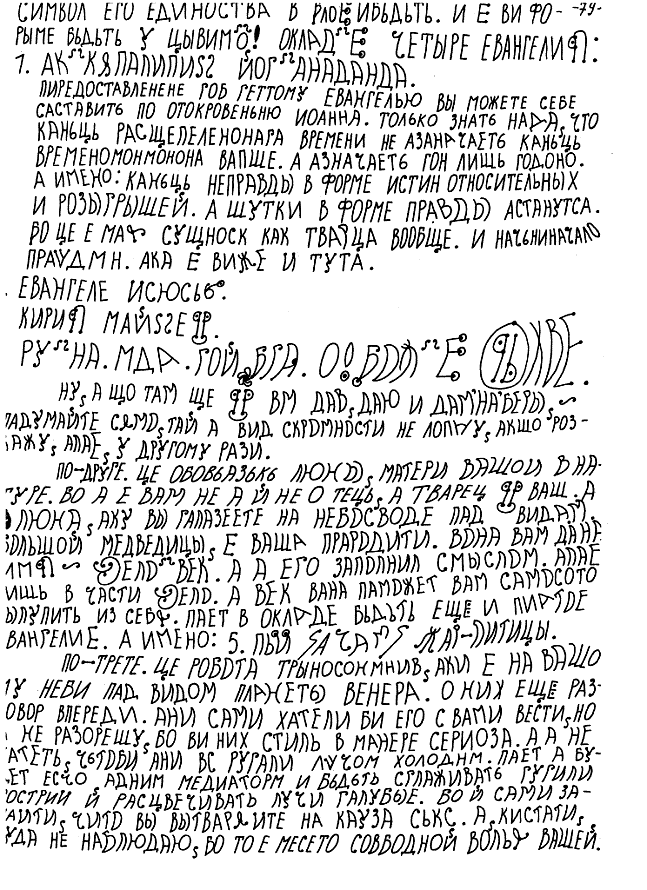 СИМВОЛ ЕГО ЕДИНОСТВА В ИВЬДЬТЬ. И Е ВИ ФО- -79-
РЫМЕ ВЬДЬТЬ У ЦЫВИМО! ОКЛАД Е ЧЕТЫРЕ ЕВАНГЕЛИЯ:
1. АК КЯПАЛИПИЅ ЙОГ АНАДАНДА.
ПИРЕДОСТАВЛЕНЕНЕ ГОВ ГЕТТОМУ ЕВАНГЕЛЬЮ ВЫ МОЖЕТЕ СЕБЕ
САСТАВИТЬ ПО ОТОКРОВЕНЬНЮ ИОАННА. ТОЛЬКО ЗНАТЬ НАДА, ЧТО
КАНЬЦЬ РАСЩЕПЕЛЕНОНАРА ВРЕМЕНИ НЕ АЗАНАЧАЕТЬ КАНЬЦЬ
ВРЕМЕНОМОНМОНОНА ВАПЩЕ. А АЗНАЧАЕТЬ ГОН ЛИШЬ ГОДОНО.
А ИМЕНО: КАНЬЦЬ НЕПРАВДЫ В ФОРМЕ ИСТИН ОТНОСИТЕЛЬНЫХ
И РОЗЫГРЫШЕЙ. А ШУТКИ В ФОРМЕ ПРАВДЫ АСТАНУТСА.
ВО ЦЕ Е МАЯ СУЩНОСК КАК ТВАРЦА ВООБЩЕ. И НАЧЬНИНАЧАЛО
ПРАУДМН. АКА Е ВИЖЕ И ТУТА.
ЕВАНГЕЛЕ ИСЮСЬ
КИРИЯ МАЙЅЕЯ.
РУ НА. МДА. ГОЙ, ВГА. О! ВДЯ Е
НУ, А ЩО ТАМ ЩЕ Я ВМ ДАВ, ДАЮ И ДАМ НА БЕРЫ,
ПАДУМАЙТЕ САМО, ТАЙ А ВИД СКРДМНДСТИ НЕ ЛОПНУ, АКШО РОЗ-
КАЖУ, АПАЕ, У ДРУГОМУ РАЗИ.
ПО-ДРУГЕ. ЦЕ ОБОВЬАЗЬКЬ ЛЮНЫ, МАТЕРИ ВАШОЙ В НА-
ТУРЕ. ВО А Е ВАМ НЕ А Й НЕ О ТЕЦЬ, А ТВАРЕЦ Я ВАШ. А
ЛЮНА, АКУ ВЫ ГАПАЗЕЕТЕ НА НЕБДСВОДЕ ПАД ВИДАМ
БОЛЬШОЙ МЕДВЕДИЦЫ, Е ВАША ПРАРДДИТИ. ВДНА ВАМ ДАНЕ
ИМЯ ДЕЛО ВЕК. А А ЕГО ЗАПОЛНИЛ СМЫСЛДМ. АПАЕ
ЛИШЬ В ЧАСТИ ДЕЛД. А ВЕК ВАНА ПАМДЖЕТ ВАМ САМДСОТО
ВЫЛУПИТЬ ИЗ СЕБЯ. ПАЕТ В ОКЛАДЕ ВЬДЬТЬ ЕЩЕ И ПИАТДЕ
ЕВАНГЕЛИЕ. А ИМЕНО: 5. ЖАР-ПИТИЦЫ.
ПО-ТРЕТЕ. ЦЕ РОВДТА ТРЫНОСОНМНИВ, АКИ Е НА ВАШО
МУ НЕВИ ПАД ВИДОМ ПЛАНЕТЫ ВЕНЕРА. О НИХ ЕЩЕ РАЗ-
ГОВОР ВПЕРЕДИ. АНИ САМИ ХАТЕЛИ БИ ЕГО С ВАМИ ВЕСТИ, НО
А НЕ РАЗОРЕШУ, ВО ВИ НИХ СТИЛЬ В МАНЕРЕ СЕРИОЗА. А А НЕ
ХАТЕТЬ, ЧЬТОБИ АНИ ВС РУГАЛИ ЛУЧОМ ХОЛОДНМ. ПАЕТ А БУ-
ДЕТ ЕСЧО АДНИМ МЕДИАТОРМ И ВЬДЬТЬ СГЛАЖИВАТЬ
ОСТРИИ И РАСЦВЕЧИВАТЬ ЛУЧИ ГАЛУБЫЕ. ВО Й САМИ ЗА-
, ЧИТО ВЫ ВЫТВАРЯИТЕ НА КАУЗА СЬКС. А, КИСТАТИ,
НЕ НАБЛЮДАЮ, ВО ТО Е МЕСЕТО СОВВОДНОЙ ВОЛЬЯ ВАШЕЙ.